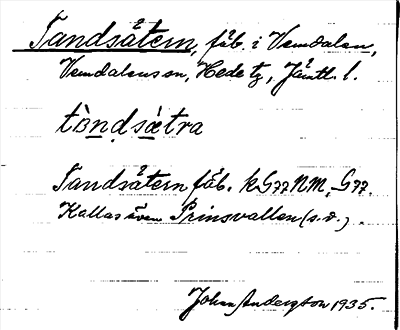 Tandsåtern, fäb. i Vemdalen,
Vemdalens sn, Hede tg, Jämtl. l.
tòndsètra
Tandsåtern fäb. kG77NM, G77.
Kallas även Prinsvallen (s.d.)
Johan Andersson 1935.